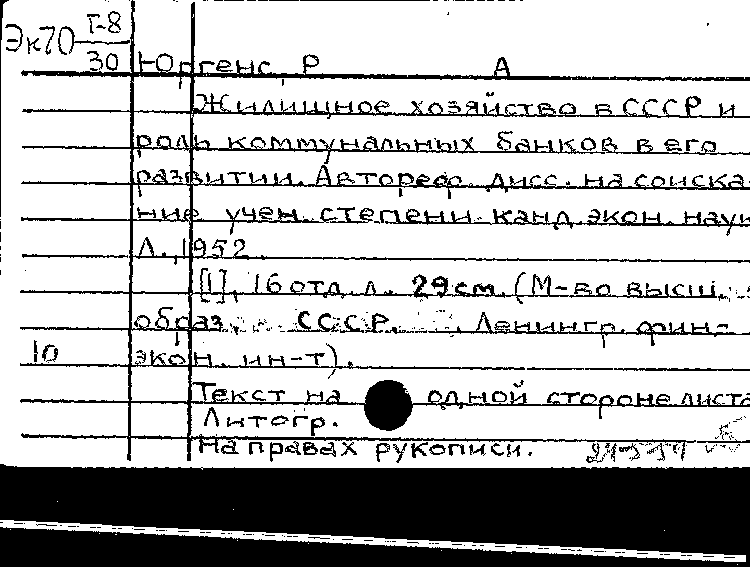 Эк70 Г-8
30 Юргенс, Р А
Жилищное хозяйство в СССР и
роль коммунальных банков в его
развитии. Автореф. дисс. на соиска-
ние учен. степени канд. экон. наук
Л., 1952.
[1], 16 отд. л. 29 см. (М-во высш.
образ. СССР. Ленингр. фин.-
10 экон. ин-т).
Текст на одной стороне листа
Литогр.
На правах рукописи.